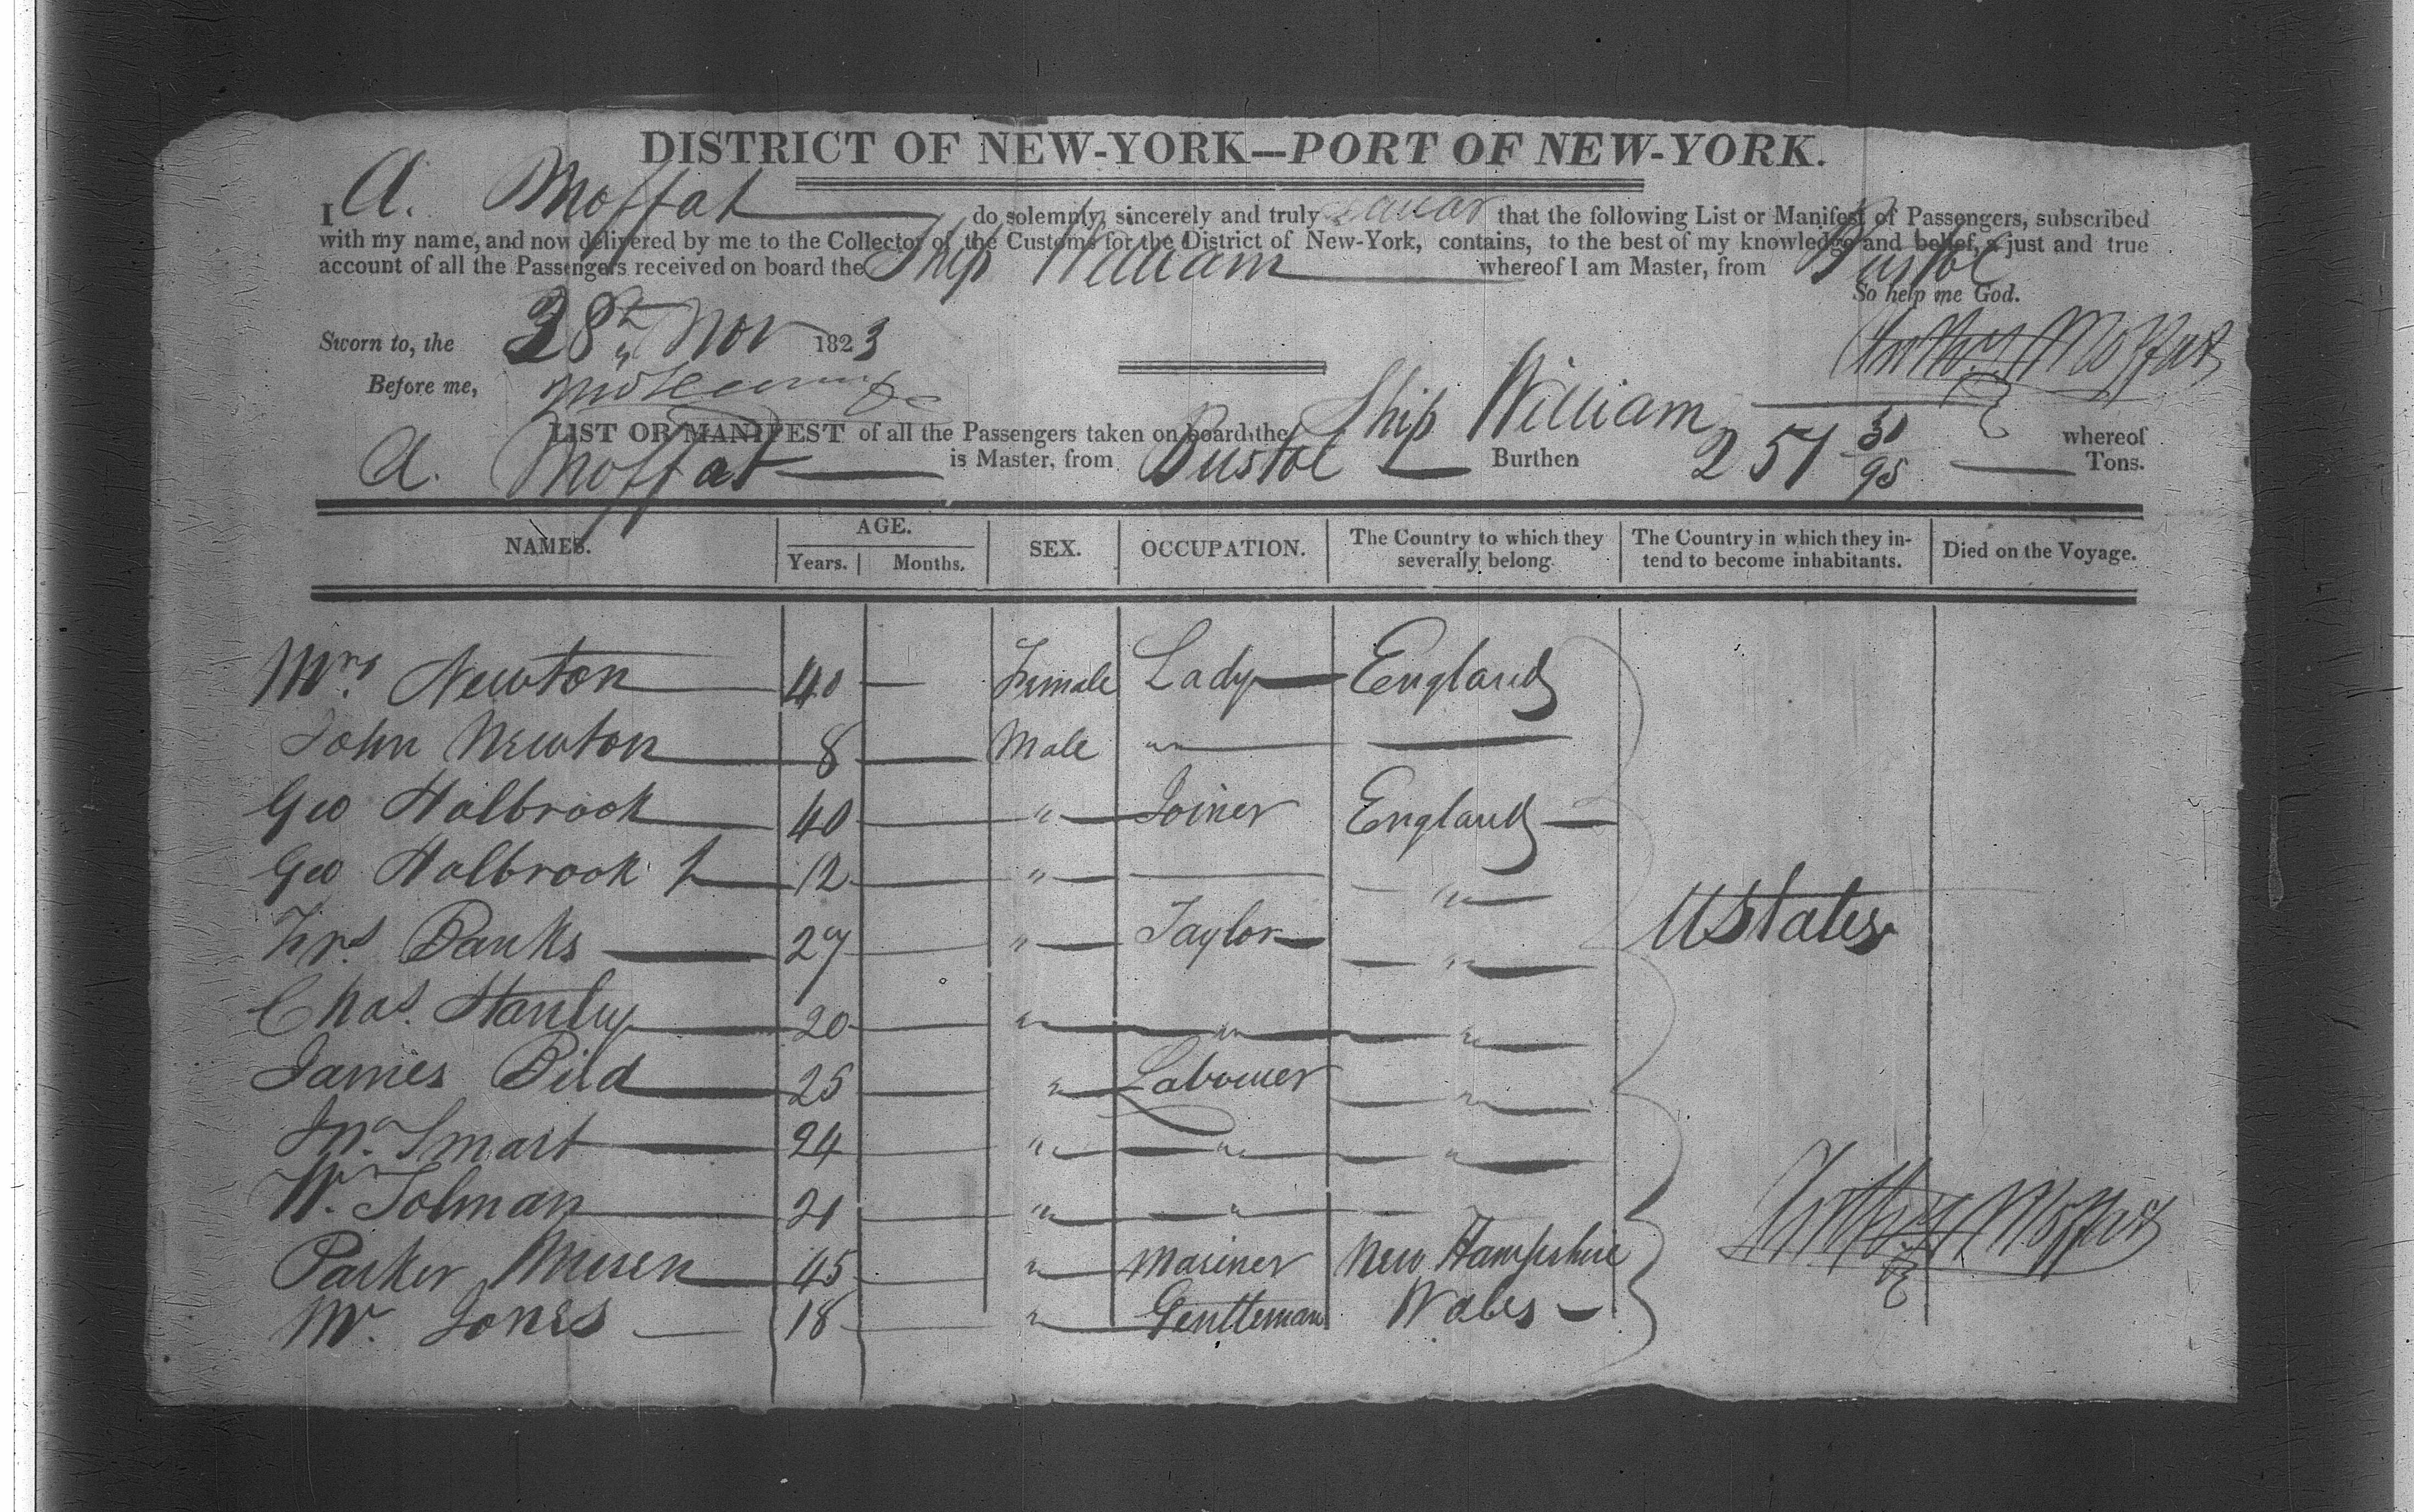 DISTRICT OF NEW-YORK—PORT OF NEW-YORK.
I A. Moffat do solemnly, sincerely and truly swear that the following List or Manifest of Passengers, subscribed
with my name, and now delivered by me to the Collector of the Customs for the District of New-York, contains, to the best of my knowledge and belief, a just and true
account of all the Passengers received on board the Ship William whereof I am Master, from Bristol
So help me God.
Sworn to, the 28th Nov 1823
Anthy Moffat
Before me,
LIST OR MANIFEST of all the Passengers taken on board the Ship William whereof
A. Moffat is Master, from Bristol Burthen 251 31/95 Tons.
NAMES. AGE. SEX. OCCUPATION. The Country to which they severally belong. The Country in which they intend to become inhabitants. Died on the Voyage.
Years. Months.
Mrs. Newton 40 — Female Lady England
John Newton 8 — Male " —
Geo Holbrook 40 — " Joiner England
Geo Holbrook 12 — " — "
Frs Banks 27 — " Taylor "
Chas. Stanley 20 — " " "
James Bird 25 — " Labourer "
Jno. Smart 24 — " " "
W. Tolman 21 — " " —
U States
Parker 45 — " Mariner New Hampshire
Mr. Jones 18 — " Gentleman Wales
Anthy Moffat